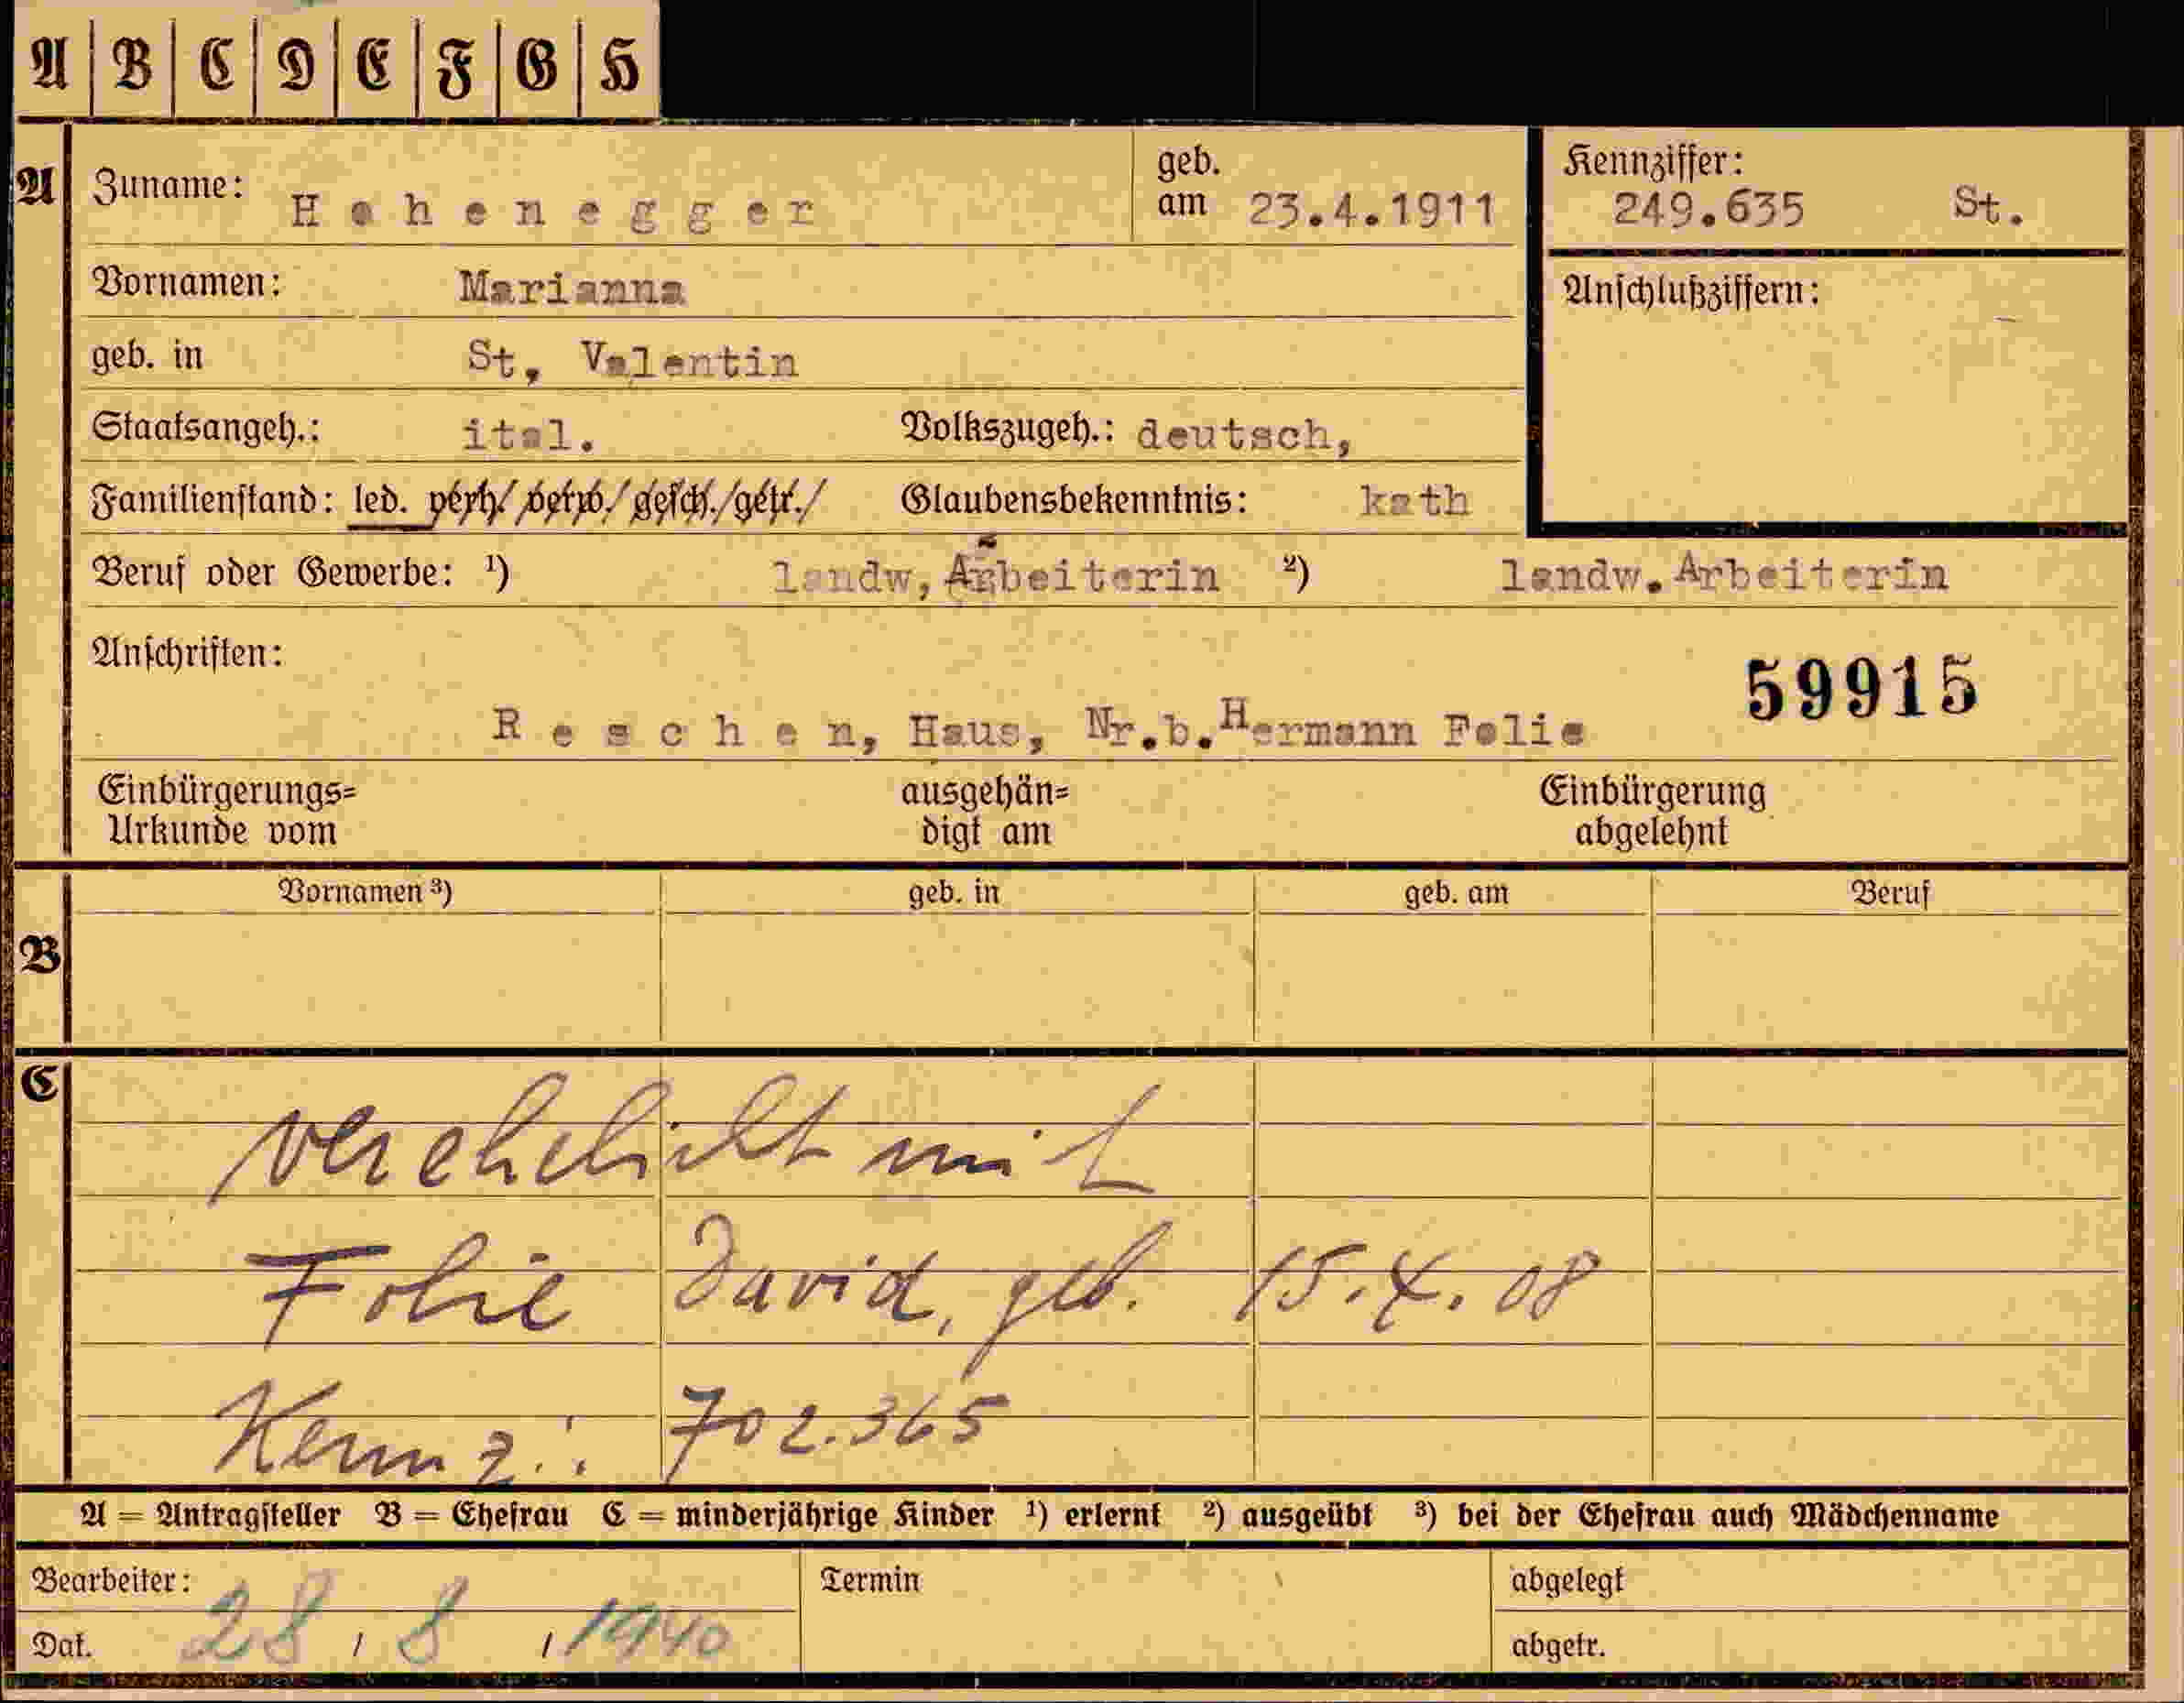 A B C D E F G H
A Zuname: Hohenegger geb. am 23.4.1911 Kennziffer: 249.635 St.
Vornamen: Marianna Anschlußziffern:
geb. in St, Valentin
Staatsangeh.: ital. Volkszugeh.: deutsch,
Familienstand: led. verh./verw./gesch./getr./ Glaubensbekenntnis: kath
Beruf oder Gewerbe: ¹) landw, Arbeiterin ²) landw. Arbeiterin
Anschriften:
59915
Reschen, Haus, Nr.b.Hermann Folie
Einbürgerungs=
Urkunde vom
ausgehän=
digt am
Einbürgerung
abgelehnt
Vornamen ³) geb. in geb. am Beruf
B
C
verehelicht mit
Folie David, geb. 15.4.08
Kennz.: 702.365
A = Antragsteller B = Ehefrau C = minderjährige Kinder ¹) erlernt ²) ausgeübt ³) bei der Ehefrau auch Mädchenname
Bearbeiter: Termin abgelegt
Dat. 28 / 8 / 1940 abgetr.